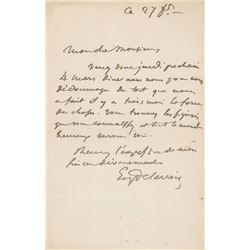 Ce 27 fév.
Mon cher Monsieur
Venez donc jeudi prochain
4 mars dîner avec nous pour nous
dédommager du tort que nous
a fait il y a trois mois la force
des choses. Vous trouverez les figures
que vous connaissez et tout le monde
heureux de vous voir.
l'expression de mon
sincère dévouement
Eug Delacroix